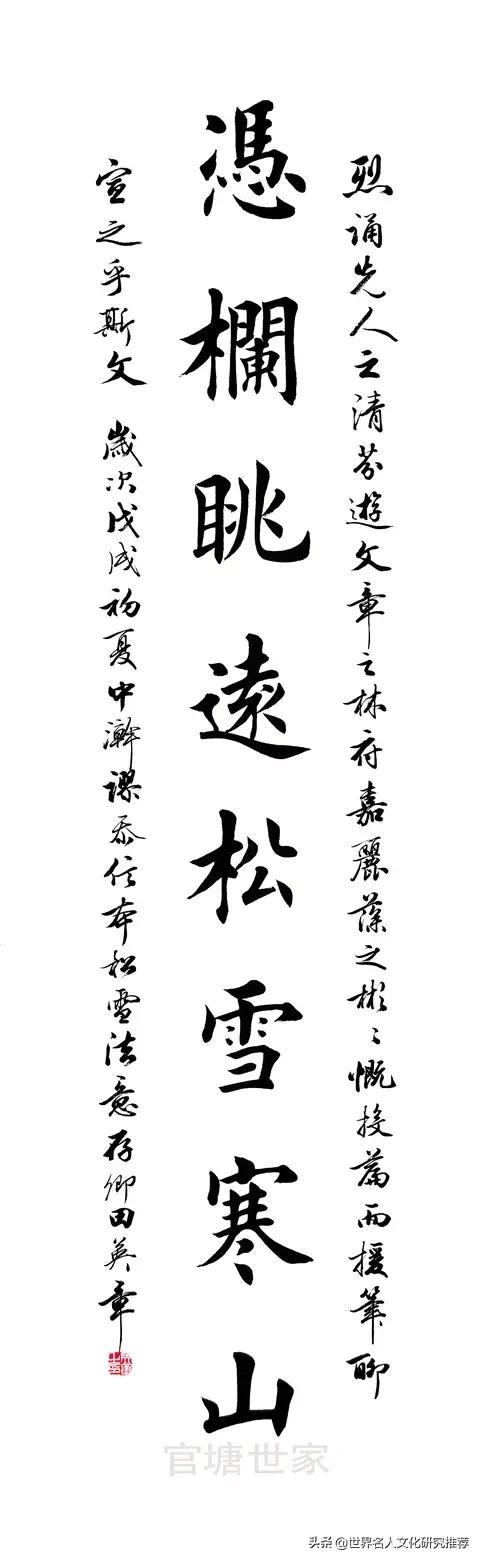 烈誦先人之清芬遊文章之林府嘉麗藻之彬彬慨投篇而援筆聊
憑欄眺遠松雪寒山
宣之乎斯文 歲次戊戌初夏中澣謬忝信本松雪法意存卿田英章
官塘世家
头条 @世界名人文化研究推荐